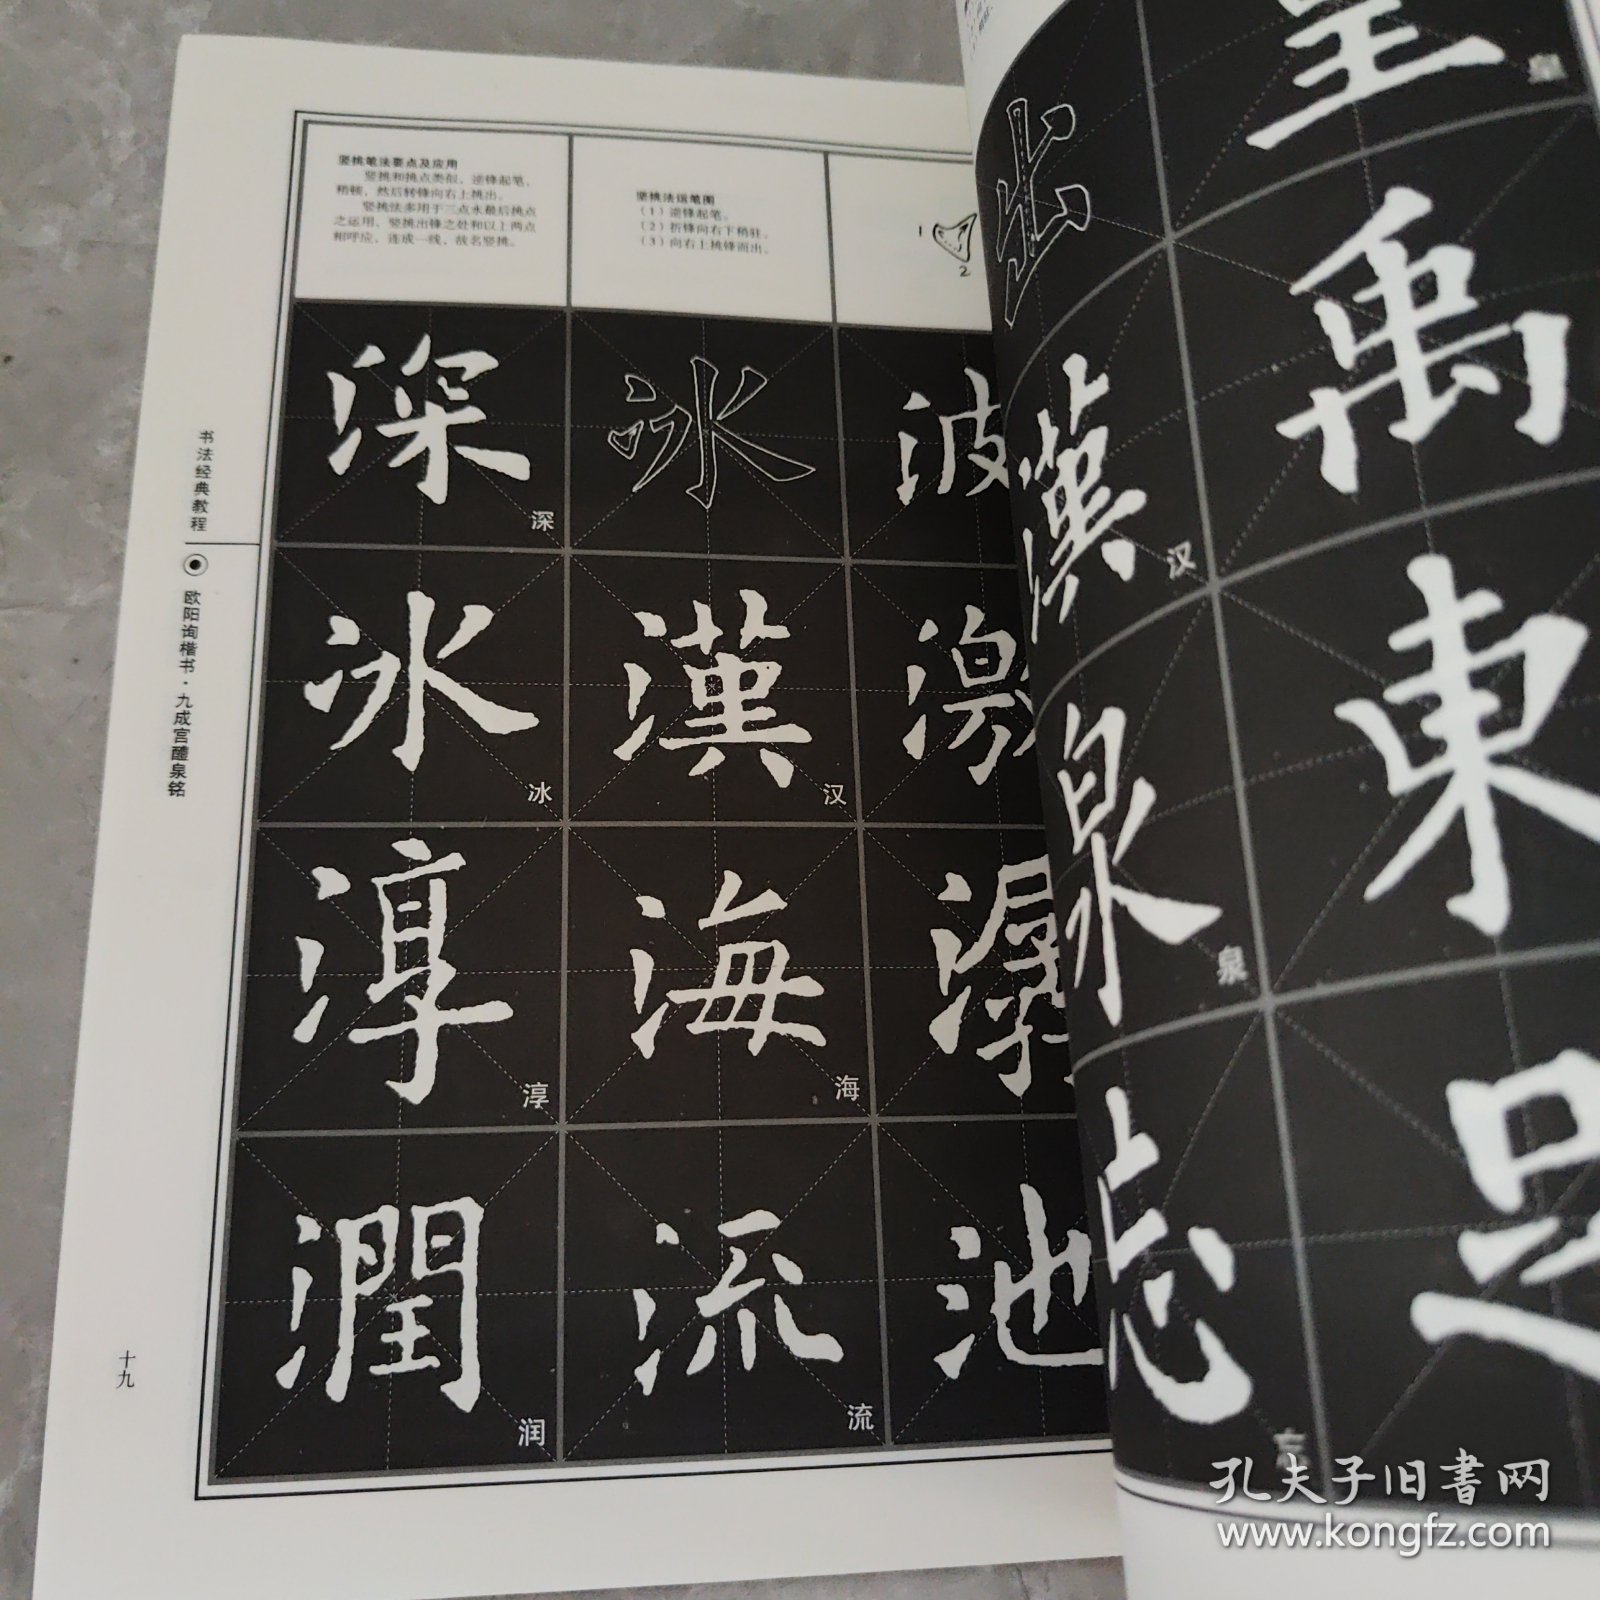 竖挑笔法要点及应用
竖挑和挑点类似，逆锋起笔，
稍顿，然后转锋向右上挑出。
竖挑法多用于三点水最后挑点
之运用，竖挑出锋之处和以上两点
相呼应，连成一线，故名竖挑。
竖挑法运笔图
（1）逆锋起笔。
（2）折锋向右下稍驻。
（3）向右上挑锋而出。
1
2
深
深
冰
波
冰
冰
漢
汉
激
淳
淳
海
海
潺
潤
润
流
流
池
书法经典教程
欧阳询楷书·九成宫醴泉铭
十九
出
漢
汉
泉
泉
忘
忘
皇
皇
禹
東
是
孔夫子旧書网
www.kongfz.com